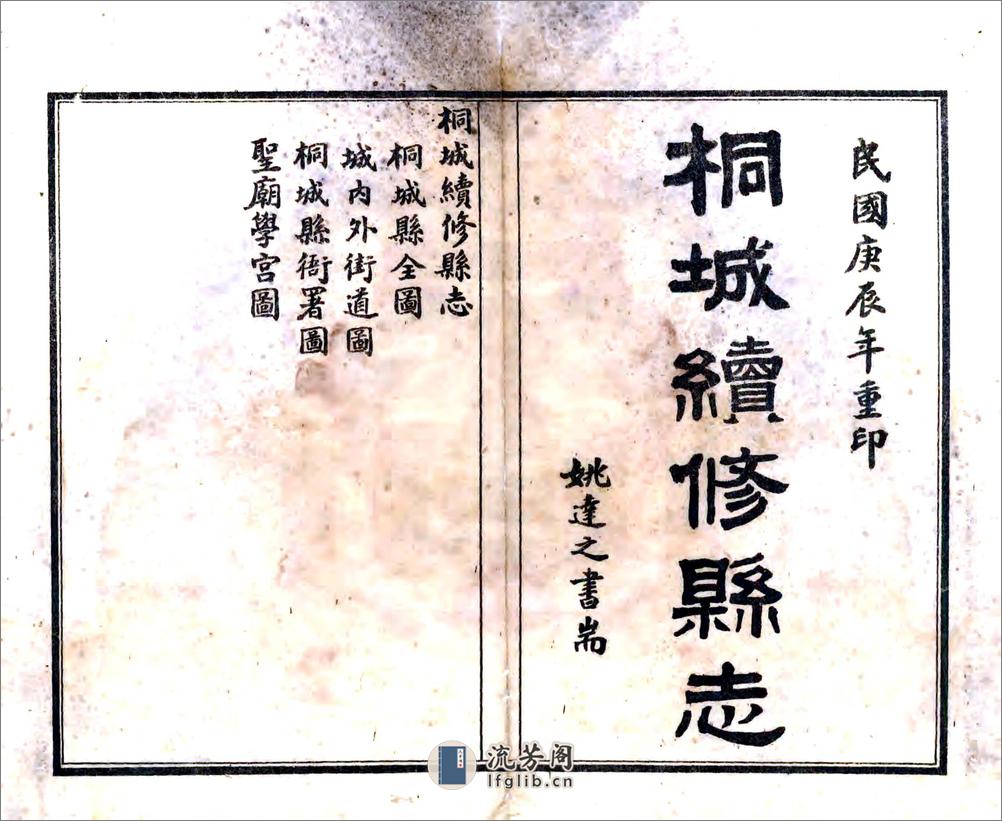 民國庚辰年重印
桐城續修縣志
姚達之書耑
桐城續修縣志
桐城縣全圖
城内外街道圖
桐城縣衙署圖
聖廟學宮圖
流芳阁
lfglib.cn